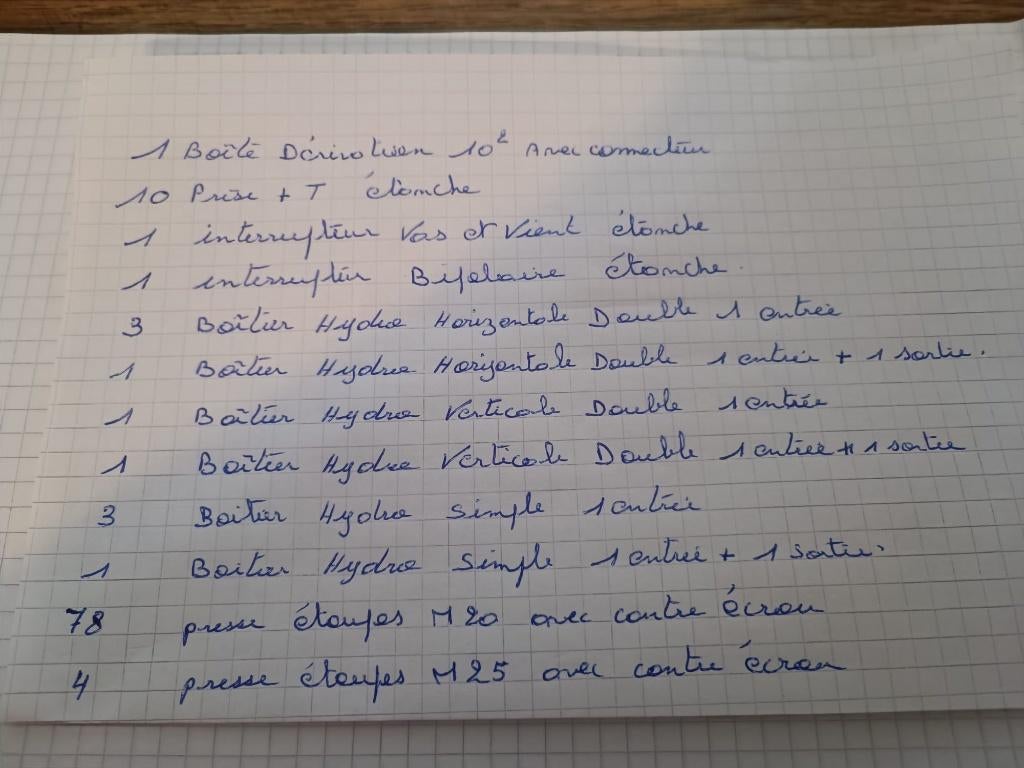 1 Boîte Dérivation 10² Avec connecteur
10 Prise + T étanche
1 interrupteur Vas et Vient étanche
1 interruptéur Bipolaire étanche.
3 Boîtier Hydro Horizontale Double 1 entrée
1 Boîtier Hydro Horizontale Double 1 entrée + 1 sortie.
1 Boîtier Hydro Verticale Double 1 entrée
1 Boîtier Hydro Verticale Double 1 entrée + 1 sortie
3 Boitier Hydro Simple 1 entrée
1 Boitier Hydro Simple 1 entrée + 1 sortie.
78 presse étoupes M20 avec contre écrou
4 presse étoupes M25 avec contre écrou